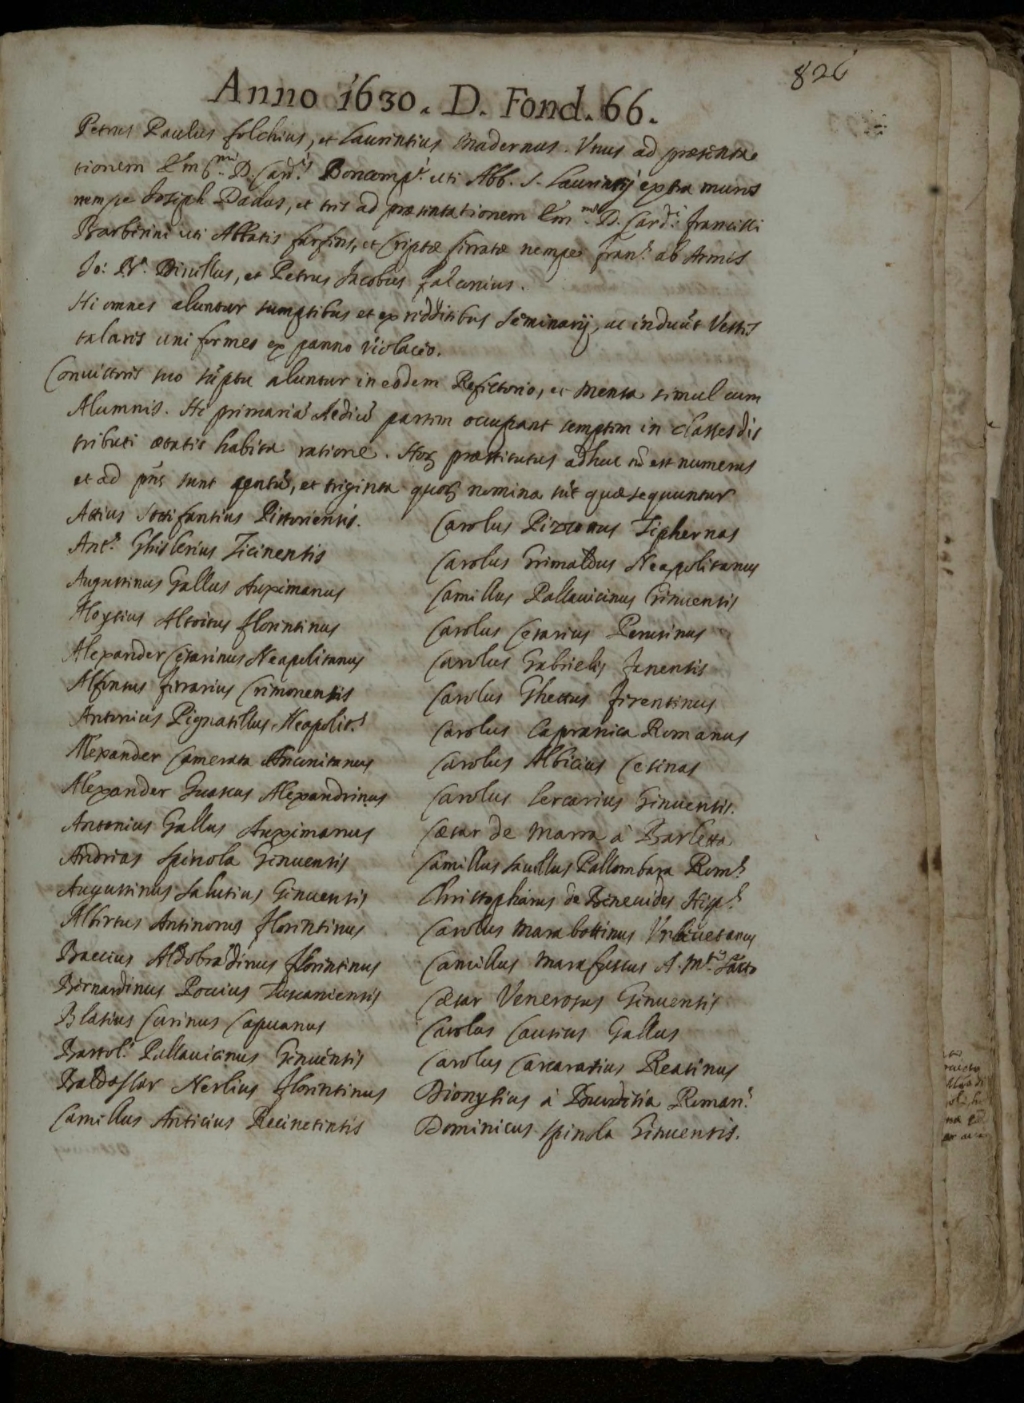 826
Anno 1630. D. Fond. 66.
Petrus Paulus folchius, et Laurintius Madernus. Vnus ad præsenta
tionem Em.mi D. Car.lis Boncomp.i uti Abb. S. Laurintij extra muros
nempe Joseph Dadus, et tris ad præsintationem Em.mi D. Card.i francisci
Barbirini uti Abbatis farfins, et Criptæ firratæ nempe fran.s ab Armis
Jo: B.a et Petrus Jacobus falconius.
Hi omnes aluntur sumptibus et ex ridditibus Siminarij, ac induūt Vestis
talaris uniformes ex panno violaceo.
Convictoris suo sūptu aluntur in eodem Refictorio, et mensa simul cum
Alumnis. Hi primariā Aediū partim occupant semptim in classes dis
tributi ætatis habita ratione. Horʒ præstitutus adhuc nō est numerus
et ad pñs sunt centū, et triginta quorʒ nomina sūt quæ sequuntur
Attius Sozzifantius Pistoriensis.
Ant.s Ghislerius Ticinensis
Augustinus Gallus Auximanus
Aloysius Altoitus florintinus
Alexander Cesarinus Neapolitanus
Alfonsus firrarius Crimonensis
Antonius Pignatillus Neapolit.s
Alexander Camerata Anconitanus
Alexander Guascus Alexandrinus
Antonius Gallus Auximanus
Andrias Spinola Ginuensis
Augustinus Salutius Ginuensis
Albirtus Antinorus florintinus
Baccius Aldobrādinus florintinus
Birnardinus Poccius Tuscaniensis
Blasius Curinus Capuanus
Bartol.s Pallauicinus Ginuensis
Baldassar Nerlius florintinus
Camillus Anticius Recinetinsis
Carolus Pizzonus Tiphernas
Carolus Grimaldus Neapolitanus
Camillus Pallauicinus Ginuensis
Carolus Cesarius Perusinus
Carolus Gabriellis fanensis
Carolus Ghettus firentinus
Carolus Capranica Romanus
Carolus Albicius Cesinas
Carolus Cercarius Ginuensis.
Cæsar de Marra à Barletta
Camillus Sauillus Pallombara Rom.s
Christophorus de Beneuides Hisp.s
Carolus Marabottinus Vrbiuetanus
Camillus Marefuscus A M.te Sācto
Cæsar Venerosus Ginuensis
Carolus Cautius Gallus
Carolus Carcaratius Reatinus
Dionysius à Burditia Roman.s
Dominicus Spinola Ginuensis.